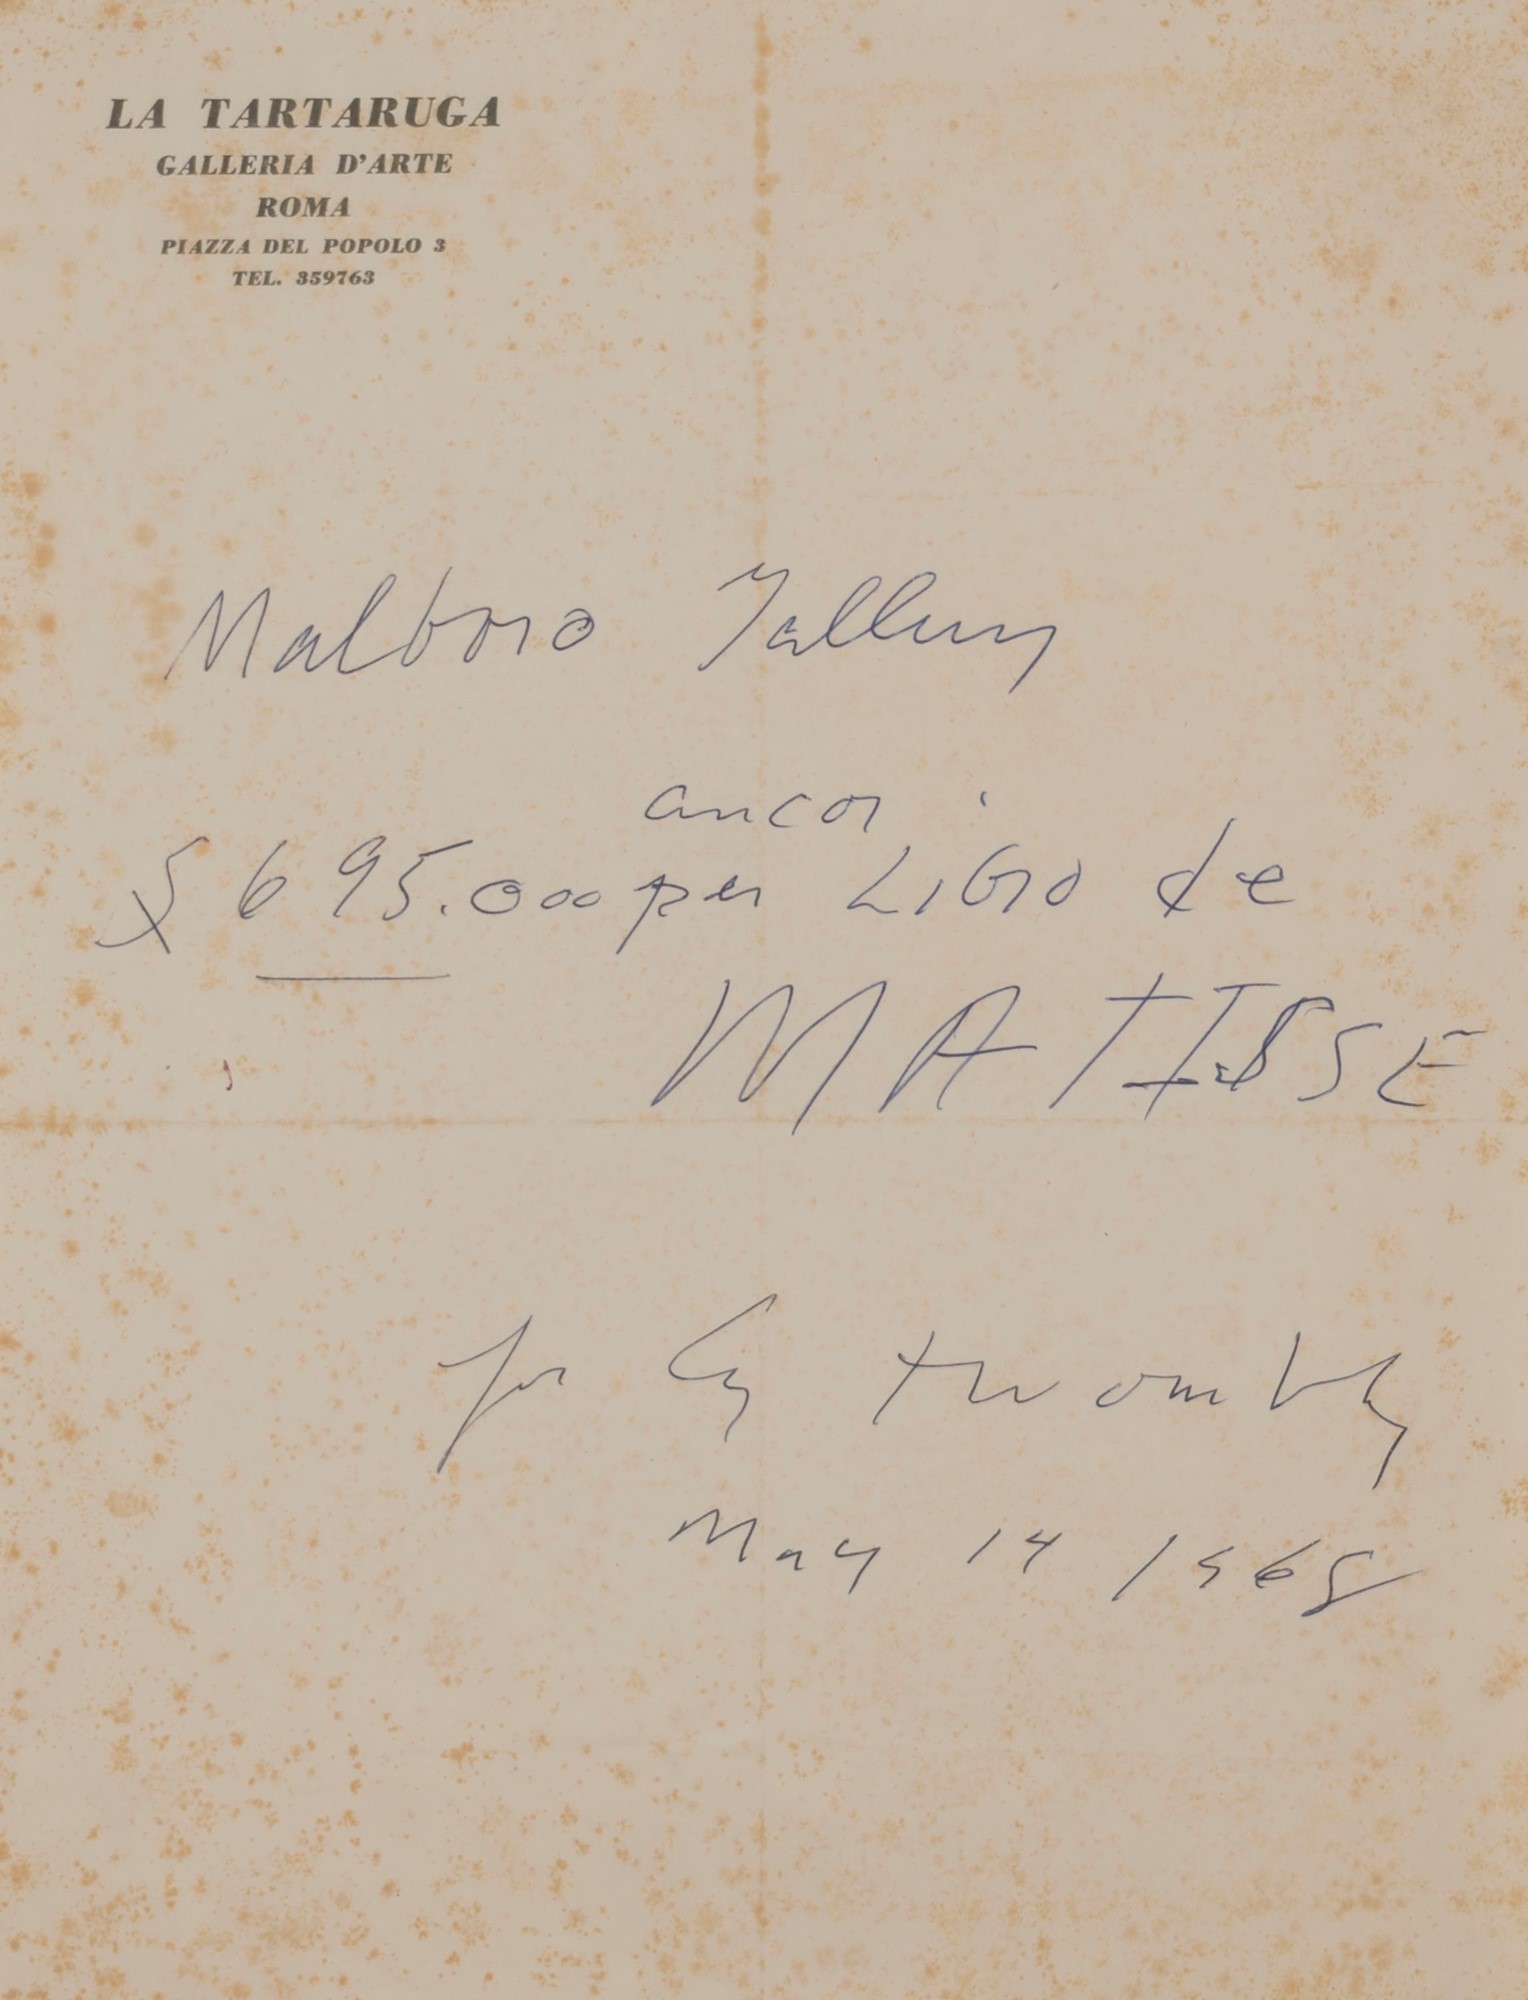 LA TARTARUGA
GALLERIA D'ARTE
ROMA
PIAZZA DEL POPOLO 3
TEL. 359763
Malboro Gallery
ancor
695.000 per Libro de
MATISSE
for Cy twombly
May 14 1968